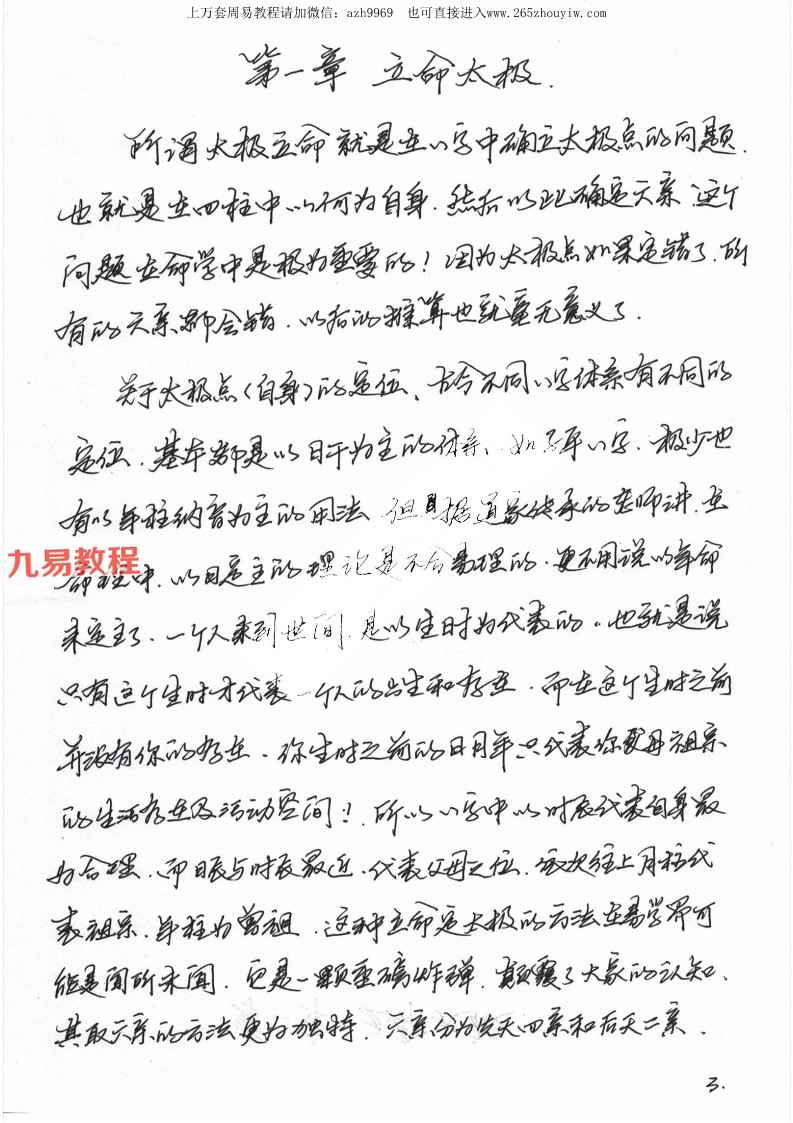 上万套周易教程请加微信：azh9969 也可直接进入www.265zhouyiw.com
第一章 立命太极.
所谓太极立命就是在八字中确立太极点的问题.
也就是在四柱中以何为自身.然后以此确定六亲.这个
问题在命学中是极为重要的！因为太极点如果定错了.所
有的六亲都会错.以后的推算也就毫无意义了.
关于太极点(自身)的定位、古今不同八字体系有不同的
定位.基本都是以日干为主的体系、如子平八字.极少也
有以年柱纳音为主的用法 但据道家传承的老师讲.在
九易教程
命理中.以日定主的理论是不合易理的.更不用说以年命
来定主了.一个人来到世间.是以生时为代表的.也就是说
只有这个生时才代表一个人的出生和存在.而在这个生时之前
并没有你的存在.你生时之前的日月年只代表你父母祖宗
的生活存在及活动空间！.所以八字中以时辰代表自身最
为合理.而日辰与时辰最近.代表父母之位.依次往上月柱代
表祖宗.年柱为曾祖.这种立命定太极的方法在易学界可
能是闻所未闻.更是一颗重磅炸弹.颠覆了大家的认知.
其取六亲的方法更为独特.六亲分为先天四亲和后天二亲.
3.